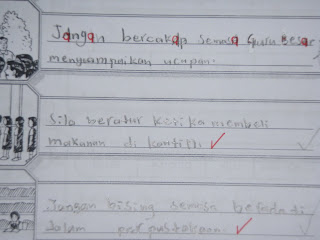 Jangan bercakap semasa Guru Besar
menyampaikan ucapan.
Sila beratur ketika membeli
makanan di kantin.
Jangan bising semasa berada di
dalam perpustakaan.